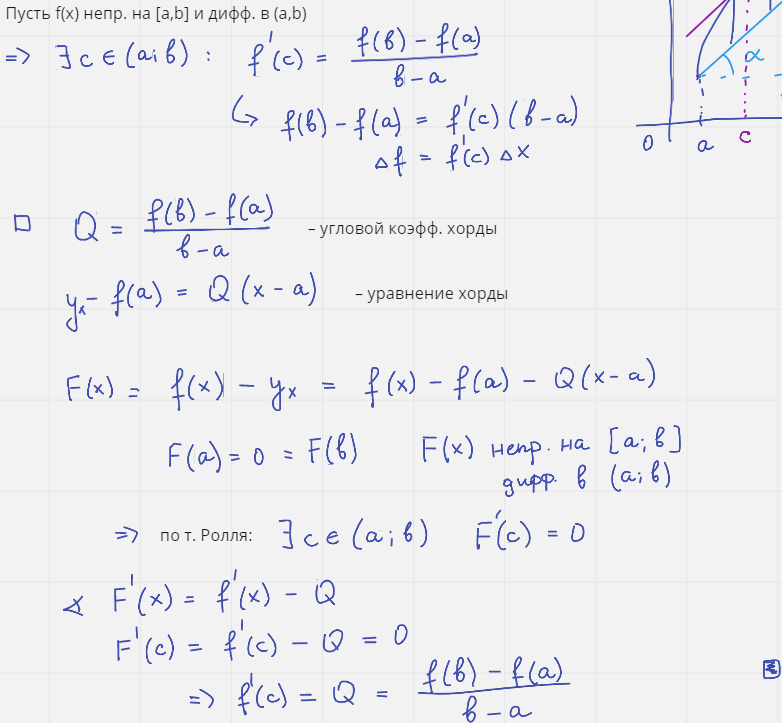 Пусть f(x) непр. на [a,b] и дифф. в (a,b)
=> ∃ c ∈ (a; b) : f'(c) = (f(b) – f(a)) / (b – a)
↳ f(b) – f(a) = f'(c) (b – a)
Δf = f'(c) Δx
α
0 a c
□ Q = (f(b) – f(a)) / (b – a) – угловой коэфф. хорды
yₓ – f(a) = Q (x – a) – уравнение хорды
F(x) = f(x) – yₓ = f(x) – f(a) – Q(x – a)
F(a) = 0 = F(b) F(x) непр. на [a; b]
дифф. в (a; b)
=> по т. Ролля: ∃ c ∈ (a; b) F'(c) = 0
∢ F'(x) = f'(x) – Q
F'(c) = f'(c) – Q = 0
=> f'(c) = Q = (f(b) – f(a)) / (b – a)